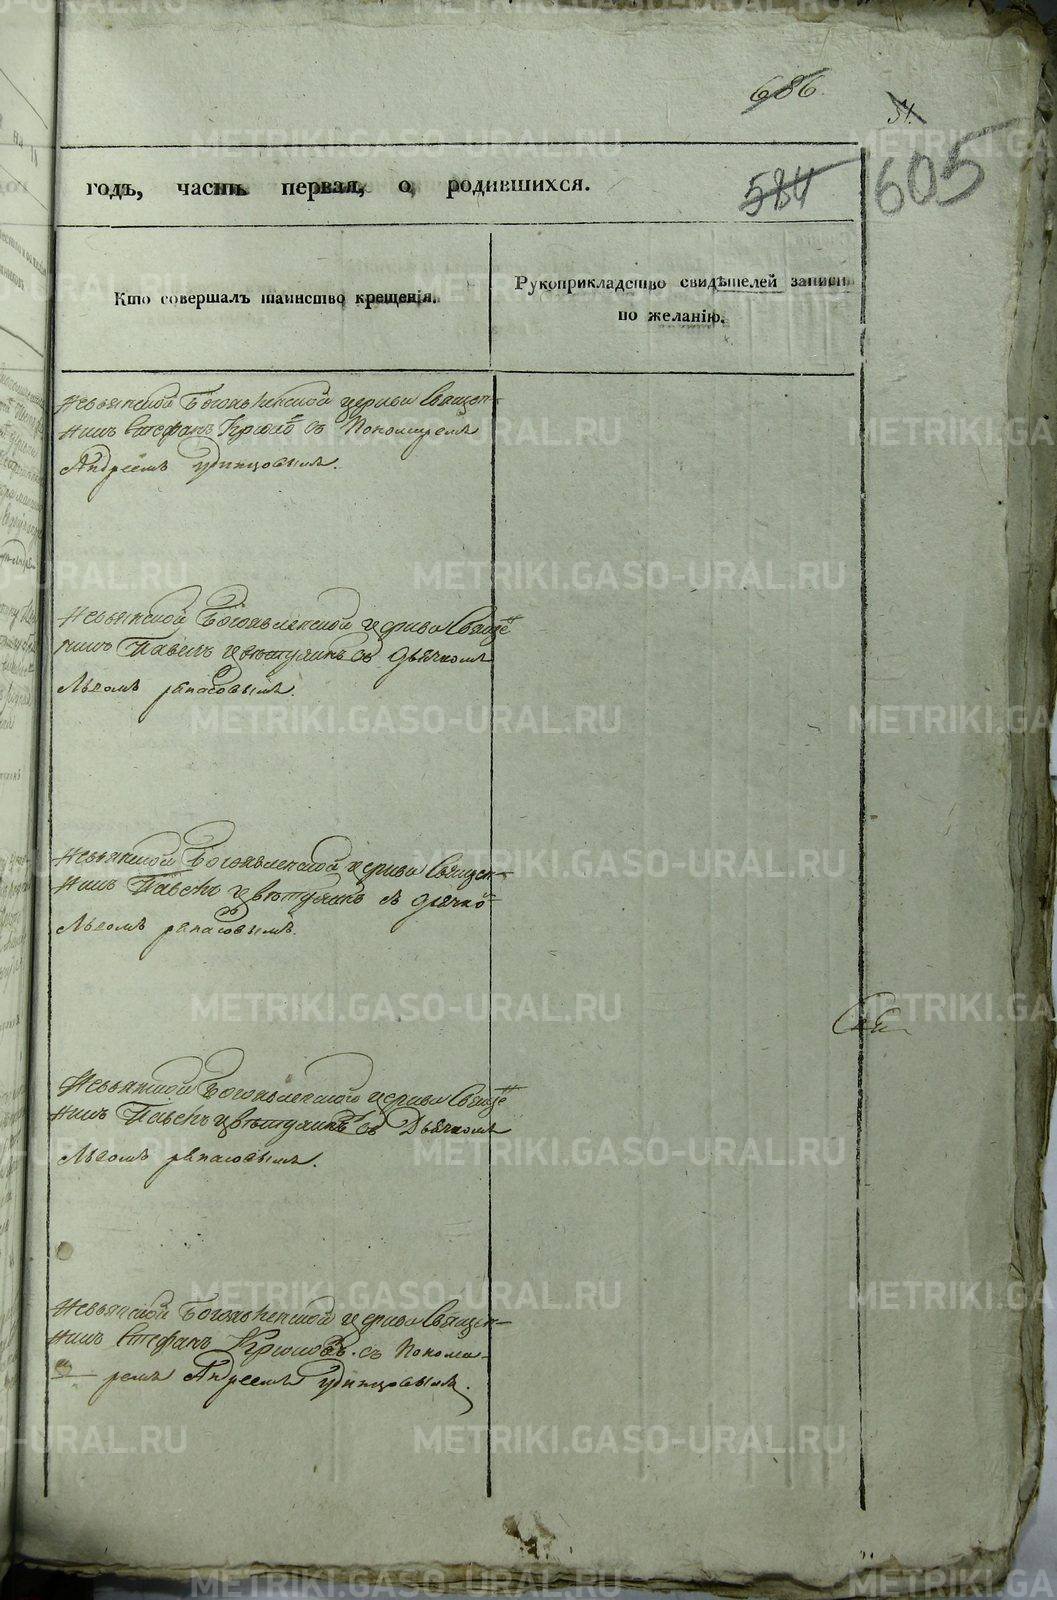 686.
51.
годъ, часть первая, о родившихся.
584
605
Кто совершалъ таинство крещенія.
Рукоприкладство свидѣтелей записи
по желанію.
Невьянской Богоявленской церкви Священ-
никъ Стефанъ с Пономаремъ
Андреемъ Удинцовымъ.
Невьянской Богоявленской церкви Священ
никъ Павелъ с дьячкомъ
Львомъ
Невьянской Богоявленской церкви Священ-
никъ Павелъ с дьячко
Львомъ
Невьянской Богоявленской церкви Священ
никъ Павелъ съ Дьячкомъ
Львомъ
Невьянской Богоявленской церкви Священ-
никъ Стефанъ съ Понома-
ремъ Андреемъ Удинцовымъ.
METRIKI.GASO-URAL.RU